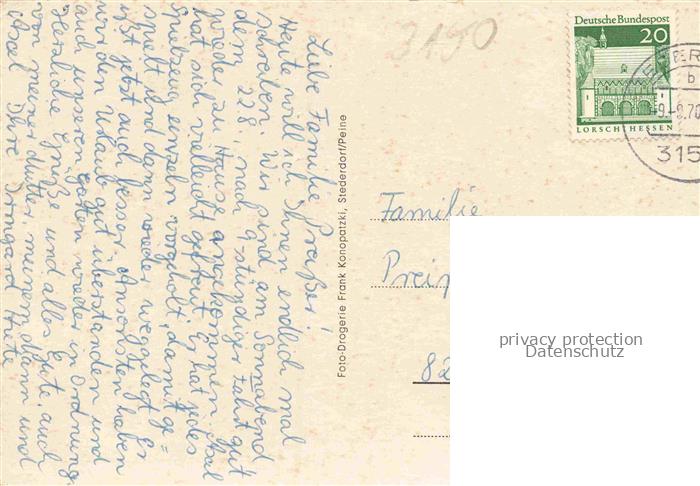 Liebe Familie Preißer!
Heute will ich Ihnen endlich mal
schreiben. Wir sind am Sonnabend
dem 22.8. nach 9 stündiger Fahrt gut
wieder zu Hause angekommen. Axel
hat sich vielleicht gefreut. Er hat jedes
Spielzeug einzeln vorgeholt, damit ge=
spielt und dann wieder weggelegt. Es
ist jetzt auch besser. Ansonsten haben
wir den Urlaub gut überstanden und
auch unseren Garten wieder in Ordnung.
Herzliche Grüße und alles Gute, auch
von meiner Mutter, meinem Mann und
Axel Ihre Irmgard
Foto-Drogerie Frank Konopatzki, Stederdorf/Peine
3190
Deutsche Bundespost
20
LORSCH/HESSEN
b
-9.-9.70
315
Familie
Prei
82
privacy protection
Datenschutz